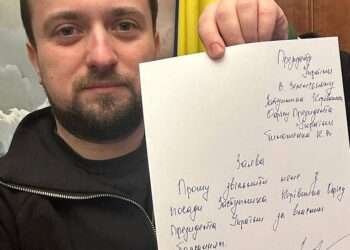 Президенту
України
В. Зеленському
Заступника Керівника
Офісу Президента
України
Тимошенка К.В.
Заява
Прошу звільнити мене з
посади Заступника Керівника Офісу
Президента України за власним
бажанням.